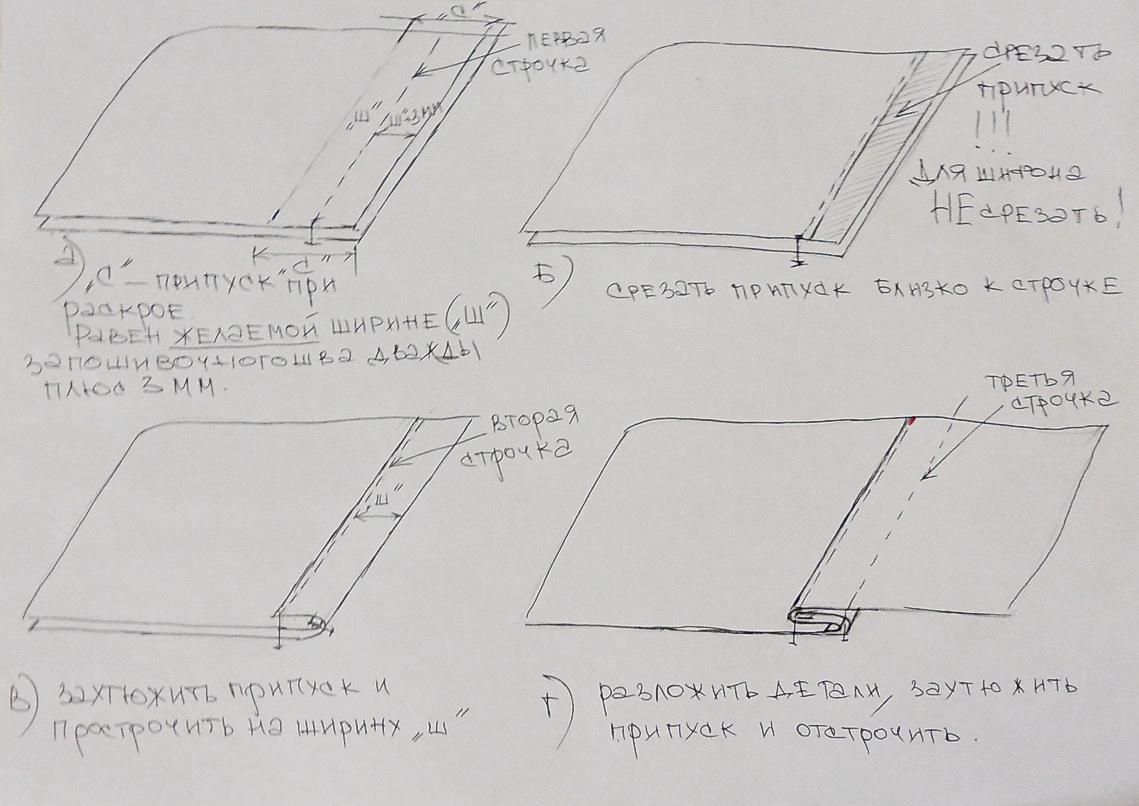 „С"
ПЕРВАЯ
СТРОЧКА
„Ш"
Ш"+3ММ
„С"
а) „С" – ПРИПУСК ПРИ
РАСКРОЕ.
РАВЕН ЖЕЛАЕМОЙ ШИРИНЕ („Ш")
ЗАПОШИВОЧНОГО ШВА ДВАЖДЫ
ПЛЮС 3 ММ.
СРЕЗАТЬ
ПРИПУСК
!!!
ДЛЯ ШИФОНА
НЕ СРЕЗАТЬ!
Б) СРЕЗАТЬ ПРИПУСК БЛИЗКО К СТРОЧКЕ
ВТОРАЯ
СТРОЧКА
„Ш"
В) ЗАУТЮЖИТЬ ПРИПУСК И
ПРОСТРОЧИТЬ НА ШИРИНУ „Ш"
ТРЕТЬЯ
СТРОЧКА
Г) РАЗЛОЖИТЬ ДЕТАЛИ, ЗАУТЮЖИТЬ
ПРИПУСК И ОТСТРОЧИТЬ.